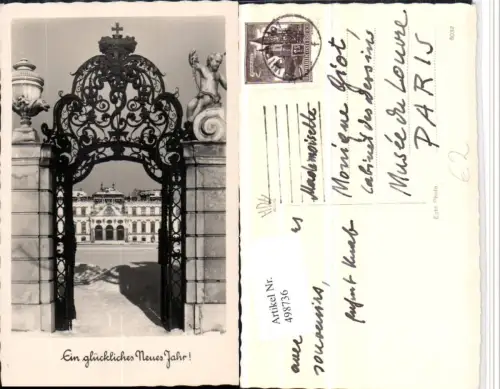 Ein glückliches Neues Jahr!
Mademoiselle
Monique Giot,
Cabinet des dessins
Musée du Louvre
PARIS
avec
souvenirs,
Artikel Nr.
498736
Echt Photo